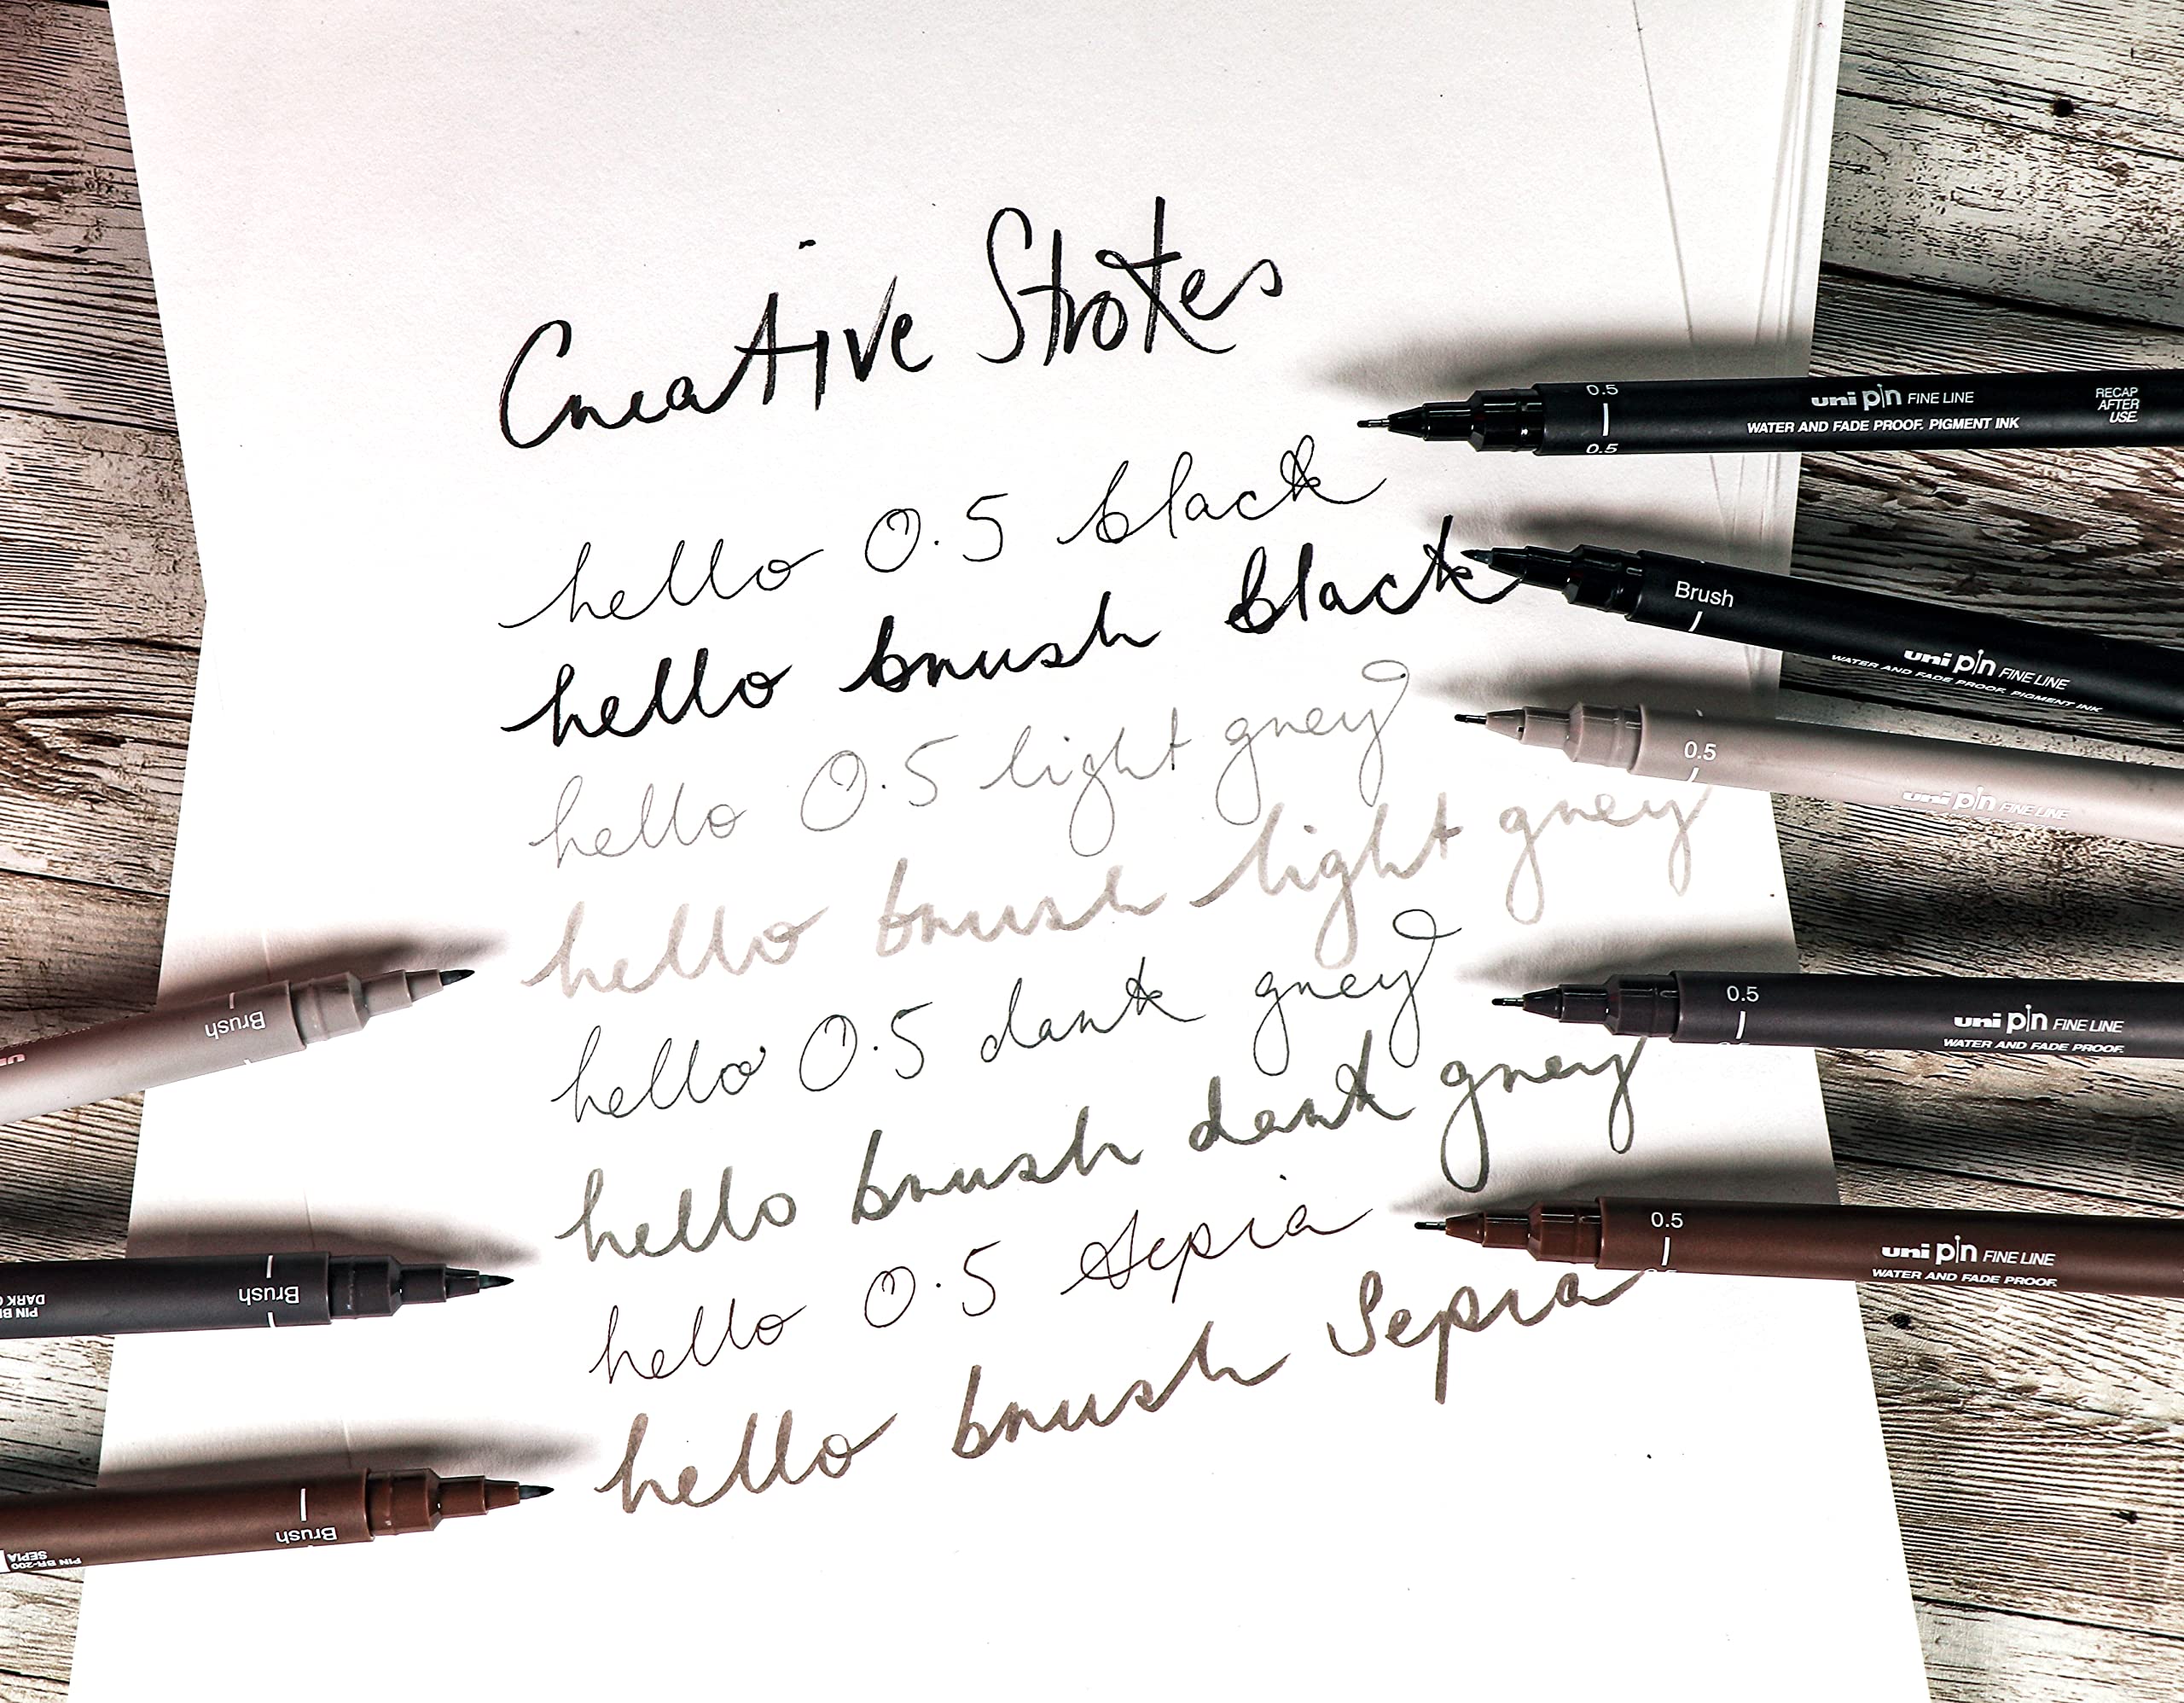 Creative Strokes
hello 0.5 black
hello brush black
hello 0.5 light grey
hello brush light grey
hello 0.5 dark grey
hello brush dark grey
hello 0.5 Sepia
hello brush Sepia
0.5
0.5
uni pin FINE LINE
WATER AND FADE PROOF. PIGMENT INK
RECAP
AFTER
USE.
Brush
uni pin FINE LINE
WATER AND FADE PROOF. PIGMENT INK
0.5
uni pin FINE LINE
0.5
uni pin FINE LINE
WATER AND FADE PROOF.
0.5
uni pin FINE LINE
WATER AND FADE PROOF.
Brush
uni
Brush
PIN BR
DARK
Brush
PIN BR-200
SEPIA